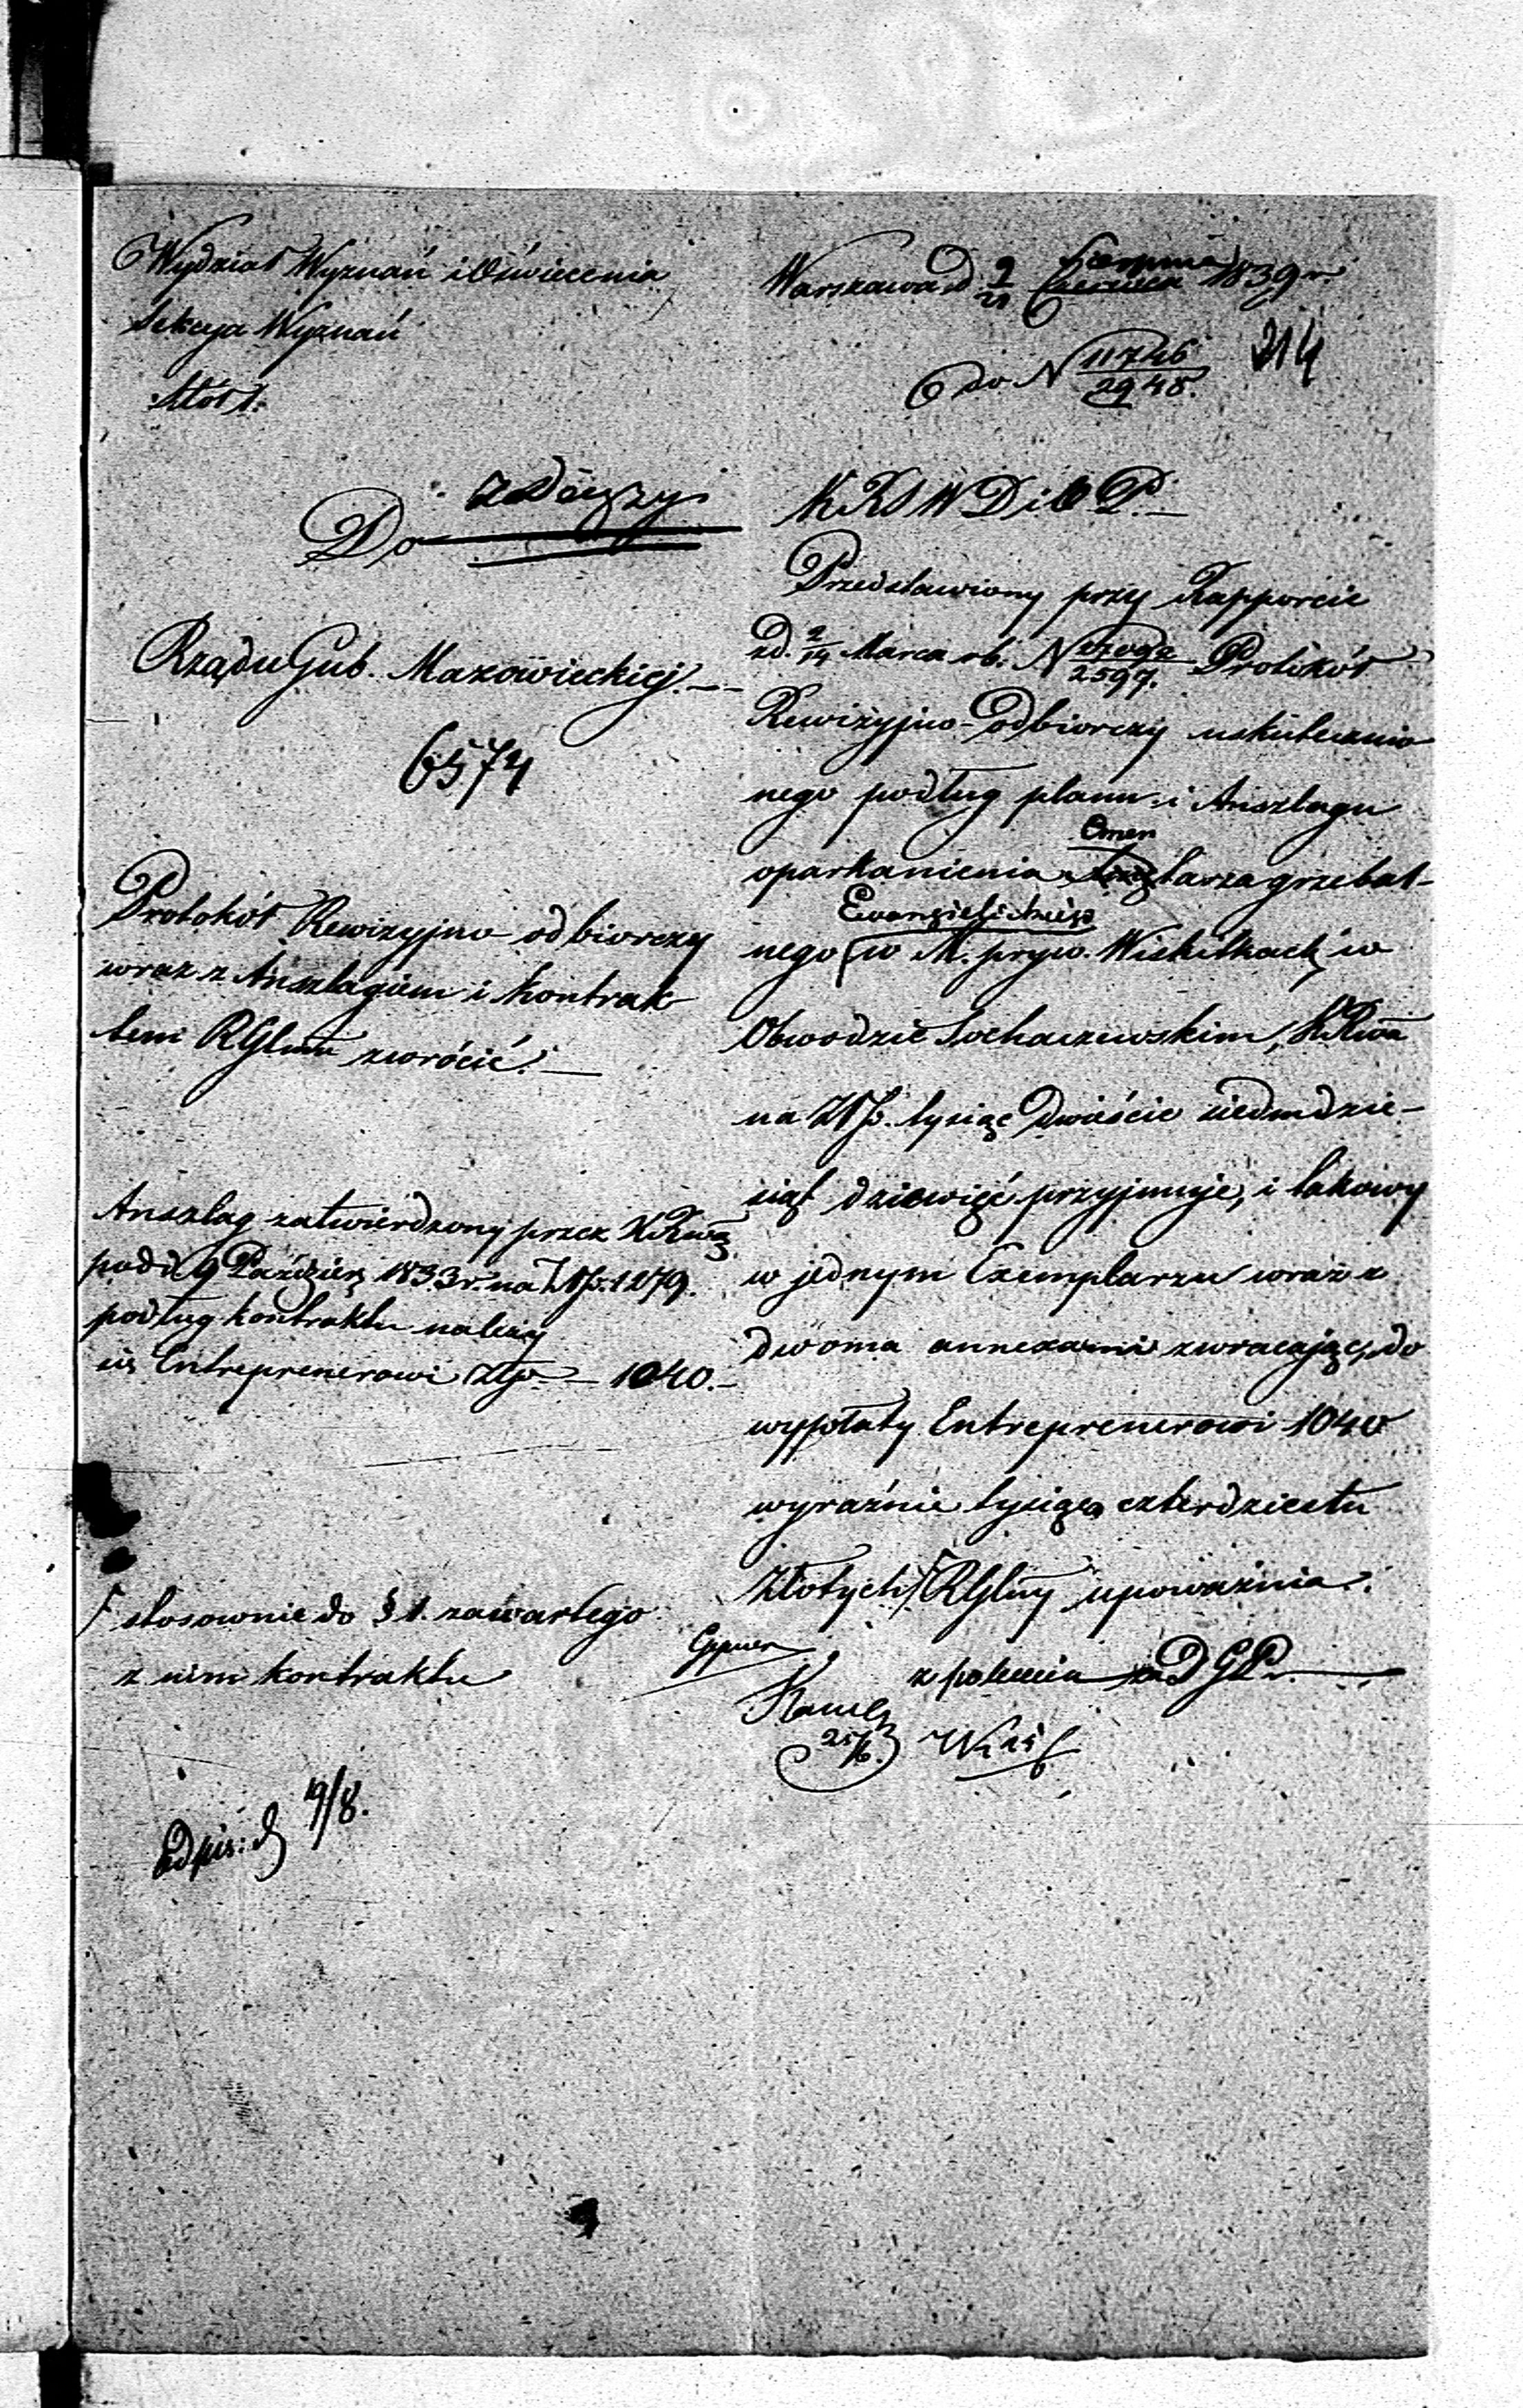 Wydział Wyznań i Oświecenia
Sekcya Wyznań
Stół 1.
Warszawa d 9/21 Czerwca Sierpnia 1839 r.
do N 11746/2948.
214
z Dołączy
Do
Rządu Gub. Mazowieckiej.
6574
Protokół Rewizyjno odbiorczy
wraz z Anszlagiem i kontrak
tem RGlnu zwrócić.
Anszlag zatwierdzony przez KRwą
pod d. 9 Paździer 1833 r. na Złp. 1279.
podług kontraktu należy
się Entreprenerowi Złp. — 1040.
stosownie do § 1. zawartego
z nim kontraktu
Odpis: d 19/8.
KRSWDiOP.
Przedstawiony przy Rapporcie
z d. 2/14 Marca rb. N 2597. Protokół
Rewizyjno-Odbiorczy uskutecznio
nego podług planu i Anszlagu
oparkanienia Cmen
tarza grzebal-
Ewangielickiego
nego w M. pryw. Wiskitkach, w
Obwodzie Sochaczewskim, KRwa
na Złp. tysiąc dwieście siedmdzie-
siąt dziewięć przyjmuje, i takowy
w jednym Exemplarzu wraz z
dwoma annexami zwracając, do
wypłaty Entreprenerowi 1040
wyraźnie tysiąca czterdziestu
Złotych RGlny upoważnia.
z polecenia DGP.
25/6.